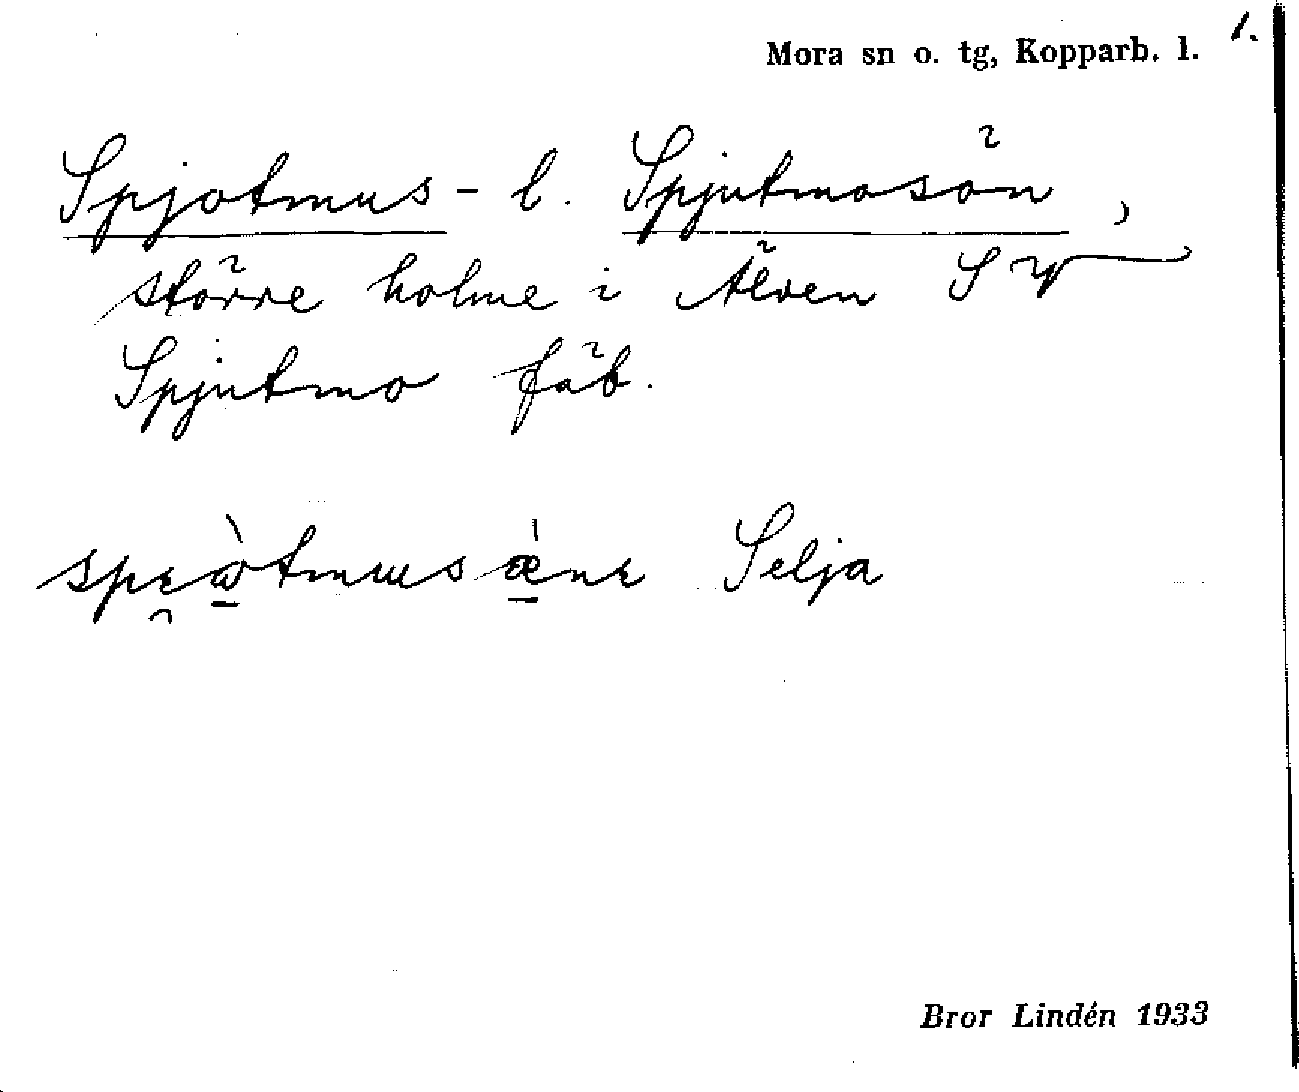 1.
Mora sn o. tg, Kopparb. l.
Spjotmus- l. Spjutmosön,
större holme i Älven S
Spjutmo fäb.
Selja
Bror Lindén 1933